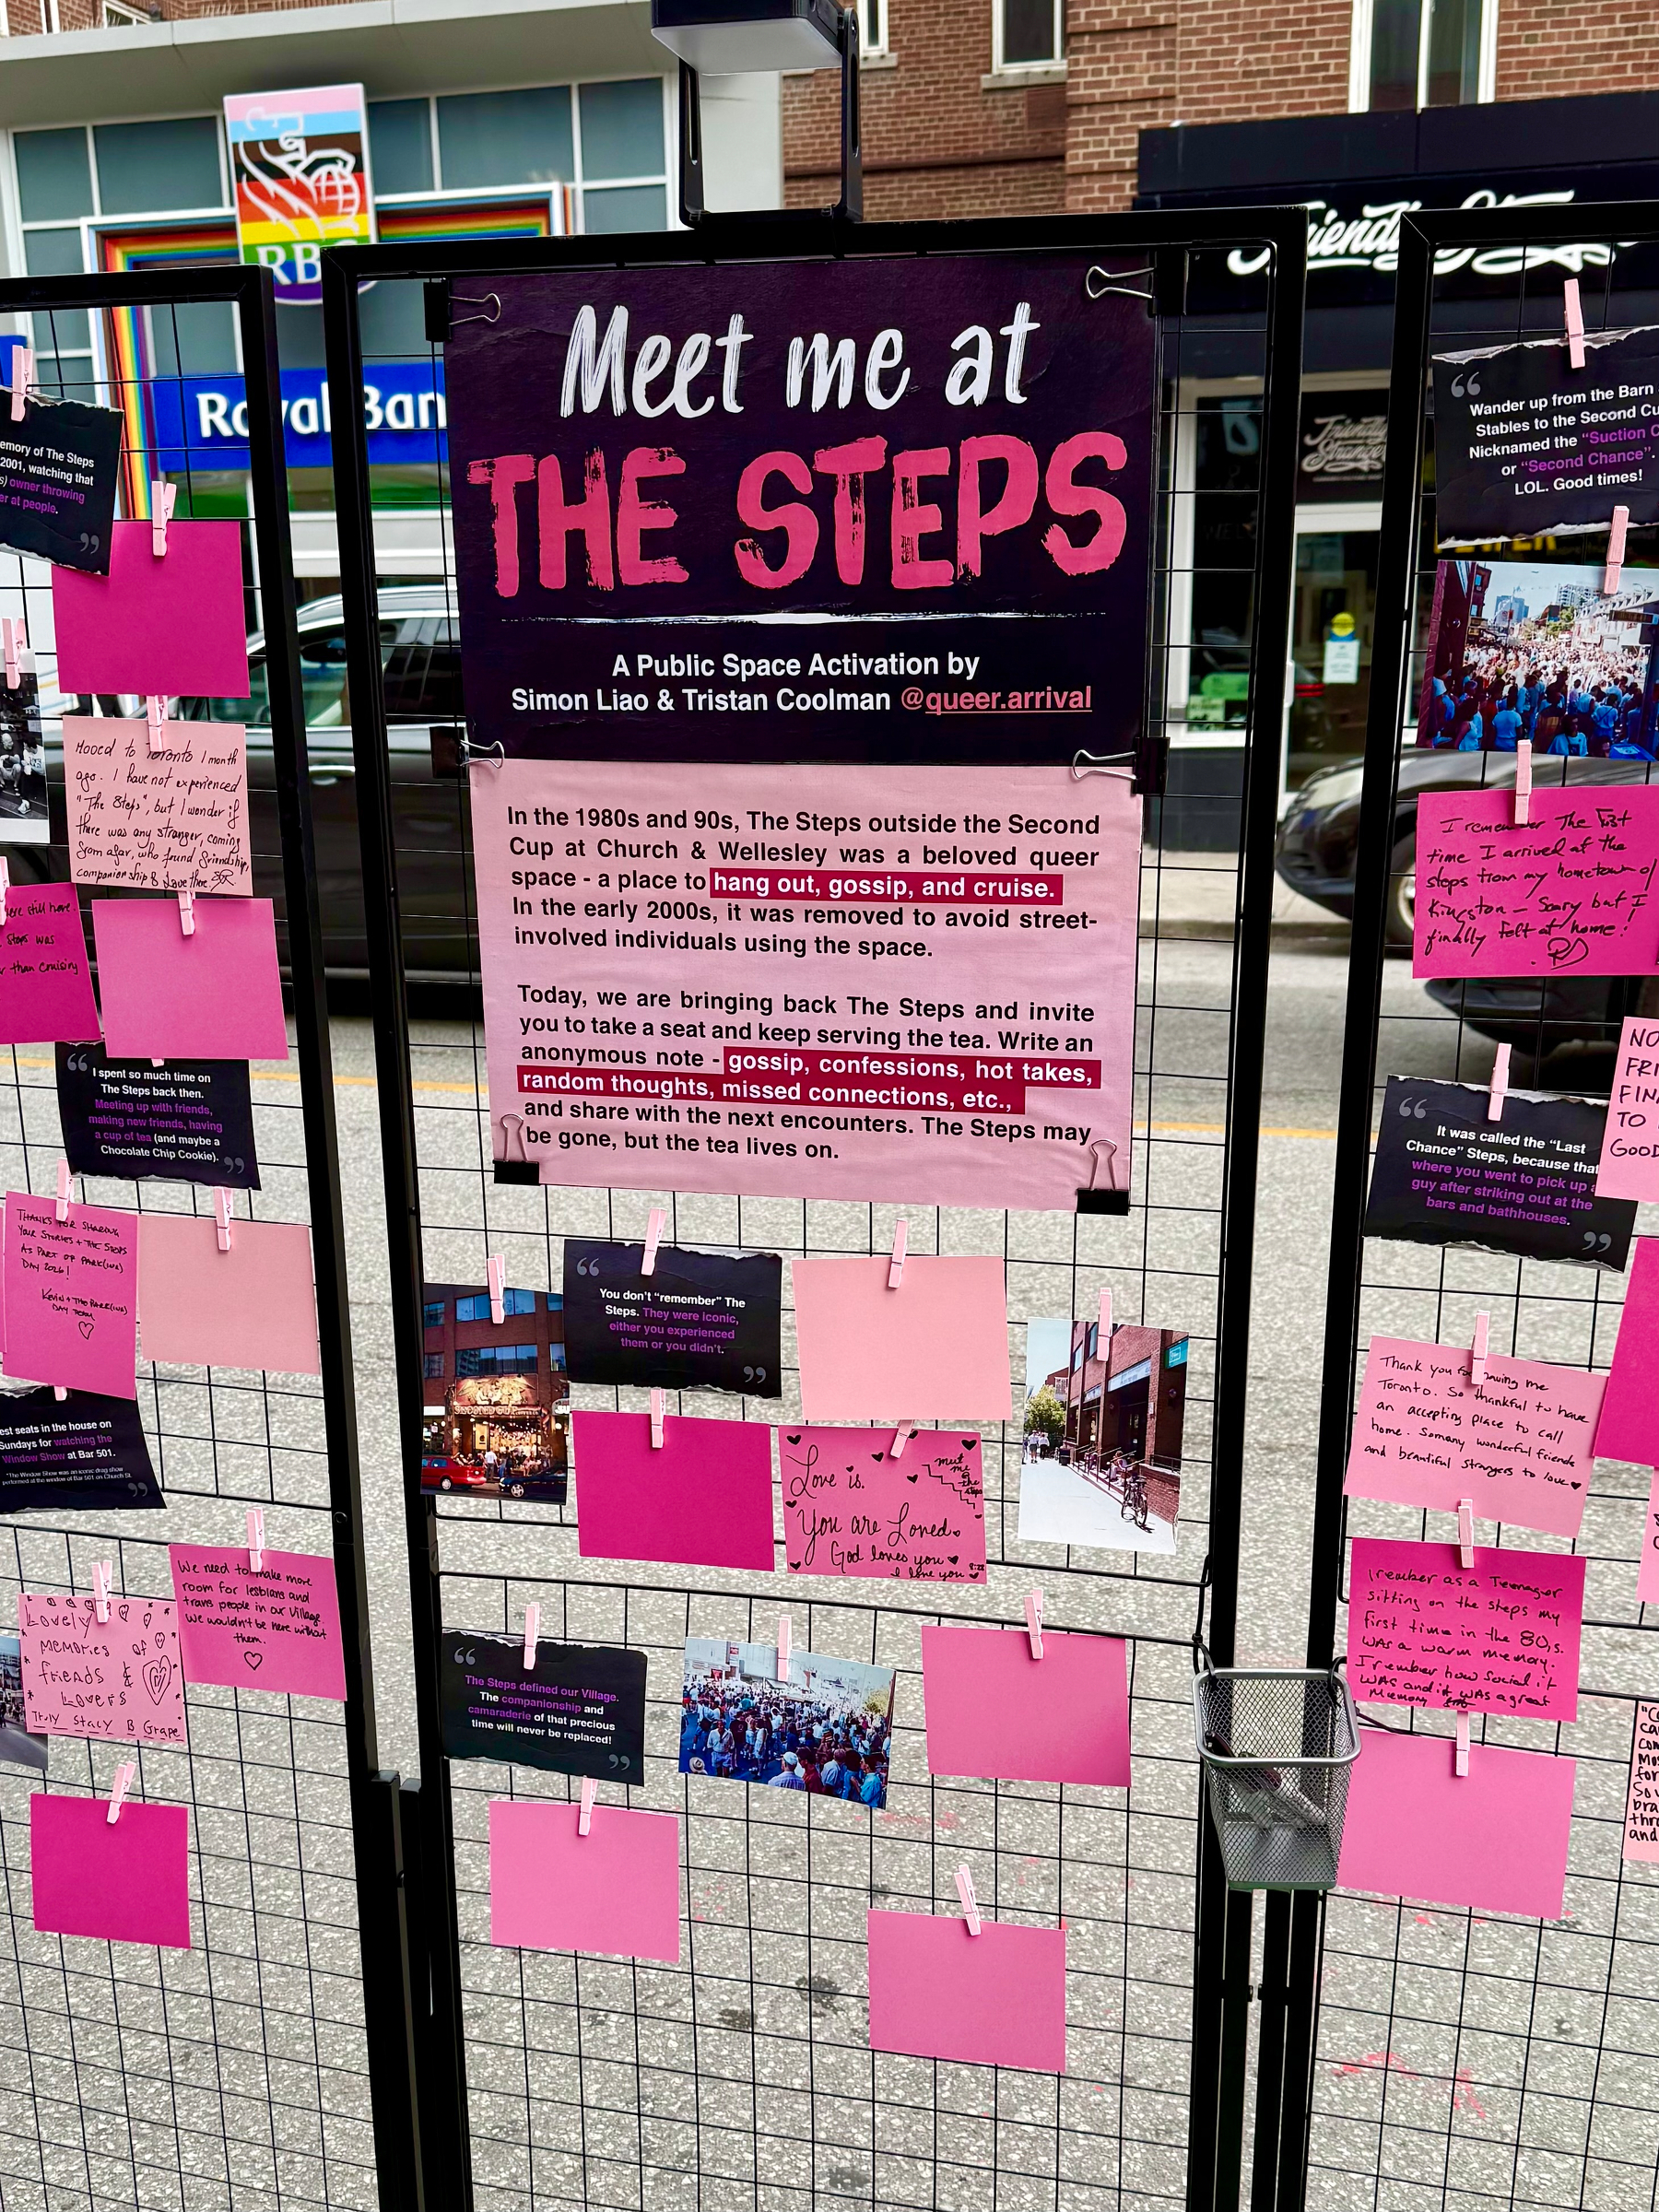 RB
Royal Ban
Friendly St
Friendly
Stranger
Meet me at
THE STEPS
A Public Space Activation by
Simon Liao & Tristan Coolman @queer.arrival
In the 1980s and 90s, The Steps outside the Second
Cup at Church & Wellesley was a beloved queer
space - a place to hang out, gossip, and cruise.
In the early 2000s, it was removed to avoid street-
involved individuals using the space.
Today, we are bringing back The Steps and invite
you to take a seat and keep serving the tea. Write an
anonymous note - gossip, confessions, hot takes,
random thoughts, missed connections, etc.,
and share with the next encounters. The Steps may
be gone, but the tea lives on.
emory of The Steps
2001, watching that
s) owner throwing
er at people.
”
Mooed to Toronto 1 month
ago. I have not experienced
"The Steps", but I wonder if
there was any stranger, coming
from afar, who found friendship,
companionship & Love there.
ere still here.
Steps was
r than cruising
“ I spent so much time on
The Steps back then.
Meeting up with friends,
making new friends, having
a cup of tea (and maybe a
Chocolate Chip Cookie). ”
THANKS FOR SHARING
YOUR STORIES + THE STEPS
AS PART OF PARK(ING)
DAY 2026!
KEVIN + THE PARK(ING)
DAY TEAM
est seats in the house on
Sundays for watching the
Window Show at Bar 501.
*The Window Show was an iconic drag show
performed at the window of Bar 501 on Church St.
”
We need to make more
room for lesbians and
trans people in our Village.
We wouldn't be here without
them.
Lovely
memories of
friends &
Lovers
Truly Stacy B Grape
“
You don't “remember” The
Steps. They were iconic,
either you experienced
them or you didn't.
”
SECOND CUP
Love is.
meet
me
@
the
steps
You are Loved.
God loves you
I love you
“
The Steps defined our Village.
The companionship and
camaraderie of that precious
time will never be replaced!
”
“
Wander up from the Barn
Stables to the Second Cu
Nicknamed the “Suction C
or “Second Chance”.
LOL. Good times!
I remember The First
time I arrived at the
steps from my hometown of
Kingston – Scary but I
finally felt at home!
NO
FRI
FIN
TO
GOOD
“
It was called the “Last
Chance” Steps, because that
where you went to pick up a
guy after striking out at the
bars and bathhouses.
”
Thank you for having me
Toronto. So thankful to have
an accepting place to call
home. Somany wonderful friends
and beautiful strangers to love
I rember as a Teenager
sitting on the steps my
first time in the 80,s.
WAS a warm memory.
I rember how Social it
WAS and it WAS a great
Memory
"C
ca
con
Mos
for
So v
bra
thr
and